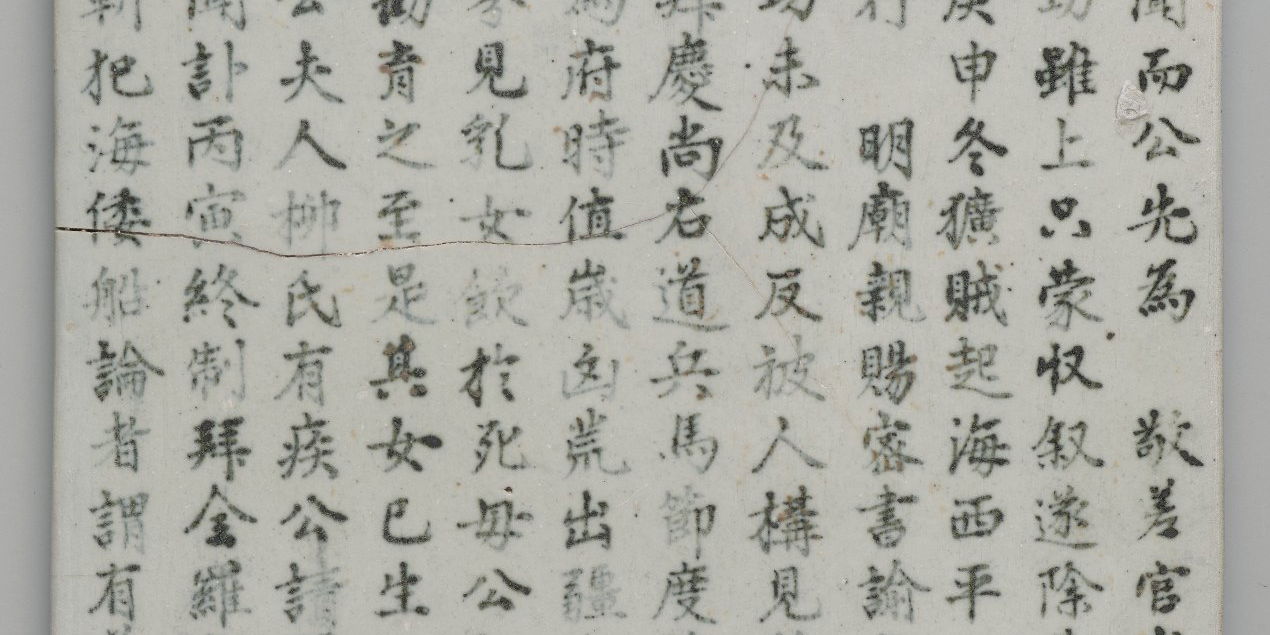 而公先為 敬差官
雖上只蒙収叙遂除
申冬獷賊起海西平
明廟親賜密書諭
未及成反被人構見
慶尚右道兵馬節度
府時值歲凶荒出疆
見乳女飲於死母公
育之至是其女已生
夫人柳氏有疾公請
訃丙寅終制拜全羅
犯海倭船論者謂有